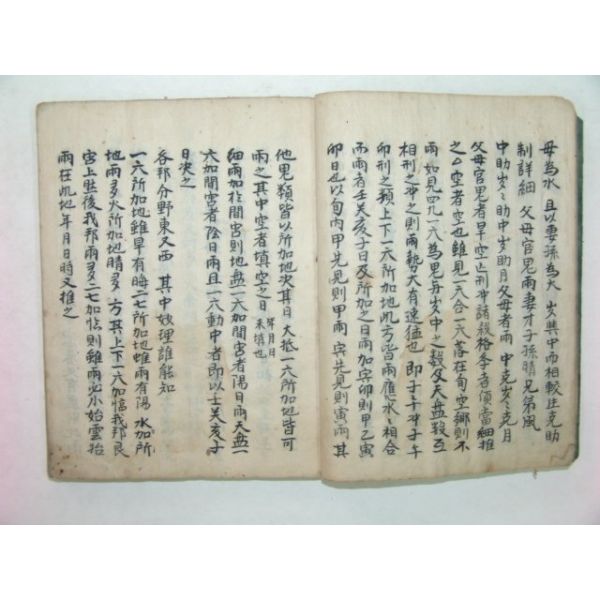 母為水 且以妻孫為火 岁與中而相較生克助
制詳細 父母官鬼雨妻才子孫晴兄弟風
中助岁岁助中岁助月父母者雨 中克岁岁克月
父母官鬼者旱空亡刑冲諸殺格季者偵當細推
之空者空也雖見一六合一六落在旬空鄉則不
雨 如見四九一六為鬼与岁中之数及天盤殺互
相刑之冲之則雨勢大有速猛也 即子午冲子午
卯刑之類上下一六所加地凡方皆雨應水相合
而雨者壬癸亥子日及所加之日雨加寅卯則甲乙寅
卯日也以旬内甲先見則甲雨寅先見則寅雨其
他鬼類皆以所加地决其日大抵一六所加地皆可
雨之其中空者填空之日 年月日來填也
細雨加於間宮則地盤一六加間宮者陽日雨天盤一
六加間宮者陰日雨且一六動中者即以壬癸亥子
日决之
各邦分野東又西 其中妙理誰能知
一六所加地雖旱有晦二七所加地雖雨有陽 水加所
地雨多火所加地晴多 方其上下一六加臨我邦艮
宮上然後我邦雨多二七加臨則雖雨必小始雲抬
雨在凡地年月日時又推之